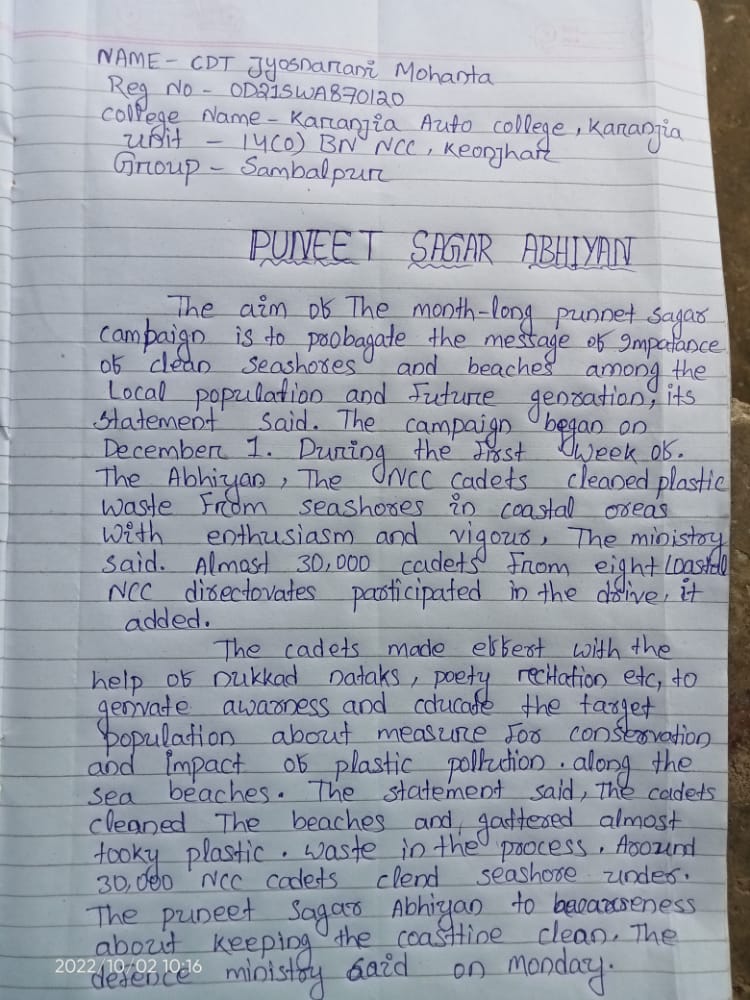 NAME - CDT Jyosnarani Mohanta
Reg No - OD21SWA870120
College Name - Karanjia Auto college, Karanjia
Unit - 14(O) BN NCC, Keonjhar
Group - Sambalpur
PUNEET SAGAR ABHIYAN
The aim of The month-long punnet sagar
campaign is to probagate the message of Impatance
of clean seashores and beaches among the
Local population and future genration, its
statement said. The campaign began on
December 1. During the first week of.
The Abhiyan, The NCC cadets cleaned plastic
waste From seashores in coastal oreas
with enthusiasm and vigour, The ministry
said. Almost 30,000 cadets from eight Coastal
NCC directovates participated in the drive, it
added.
The cadets made effert with the
help of nukkad nataks, poety recitation etc, to
genvate awarness and educate the target
population about measure for conservation
and impact of plastic pollution. along the
sea beaches. The statement said, The cadets
cleaned The beaches and gathered almost
tooky plastic. waste in the process. Around
30,000 NCC cadets clend seashore under.
The puneet Sagar Abhiyan to
about keeping the coastline clean. The
defence ministry said on monday.
2022/10/02 10:16